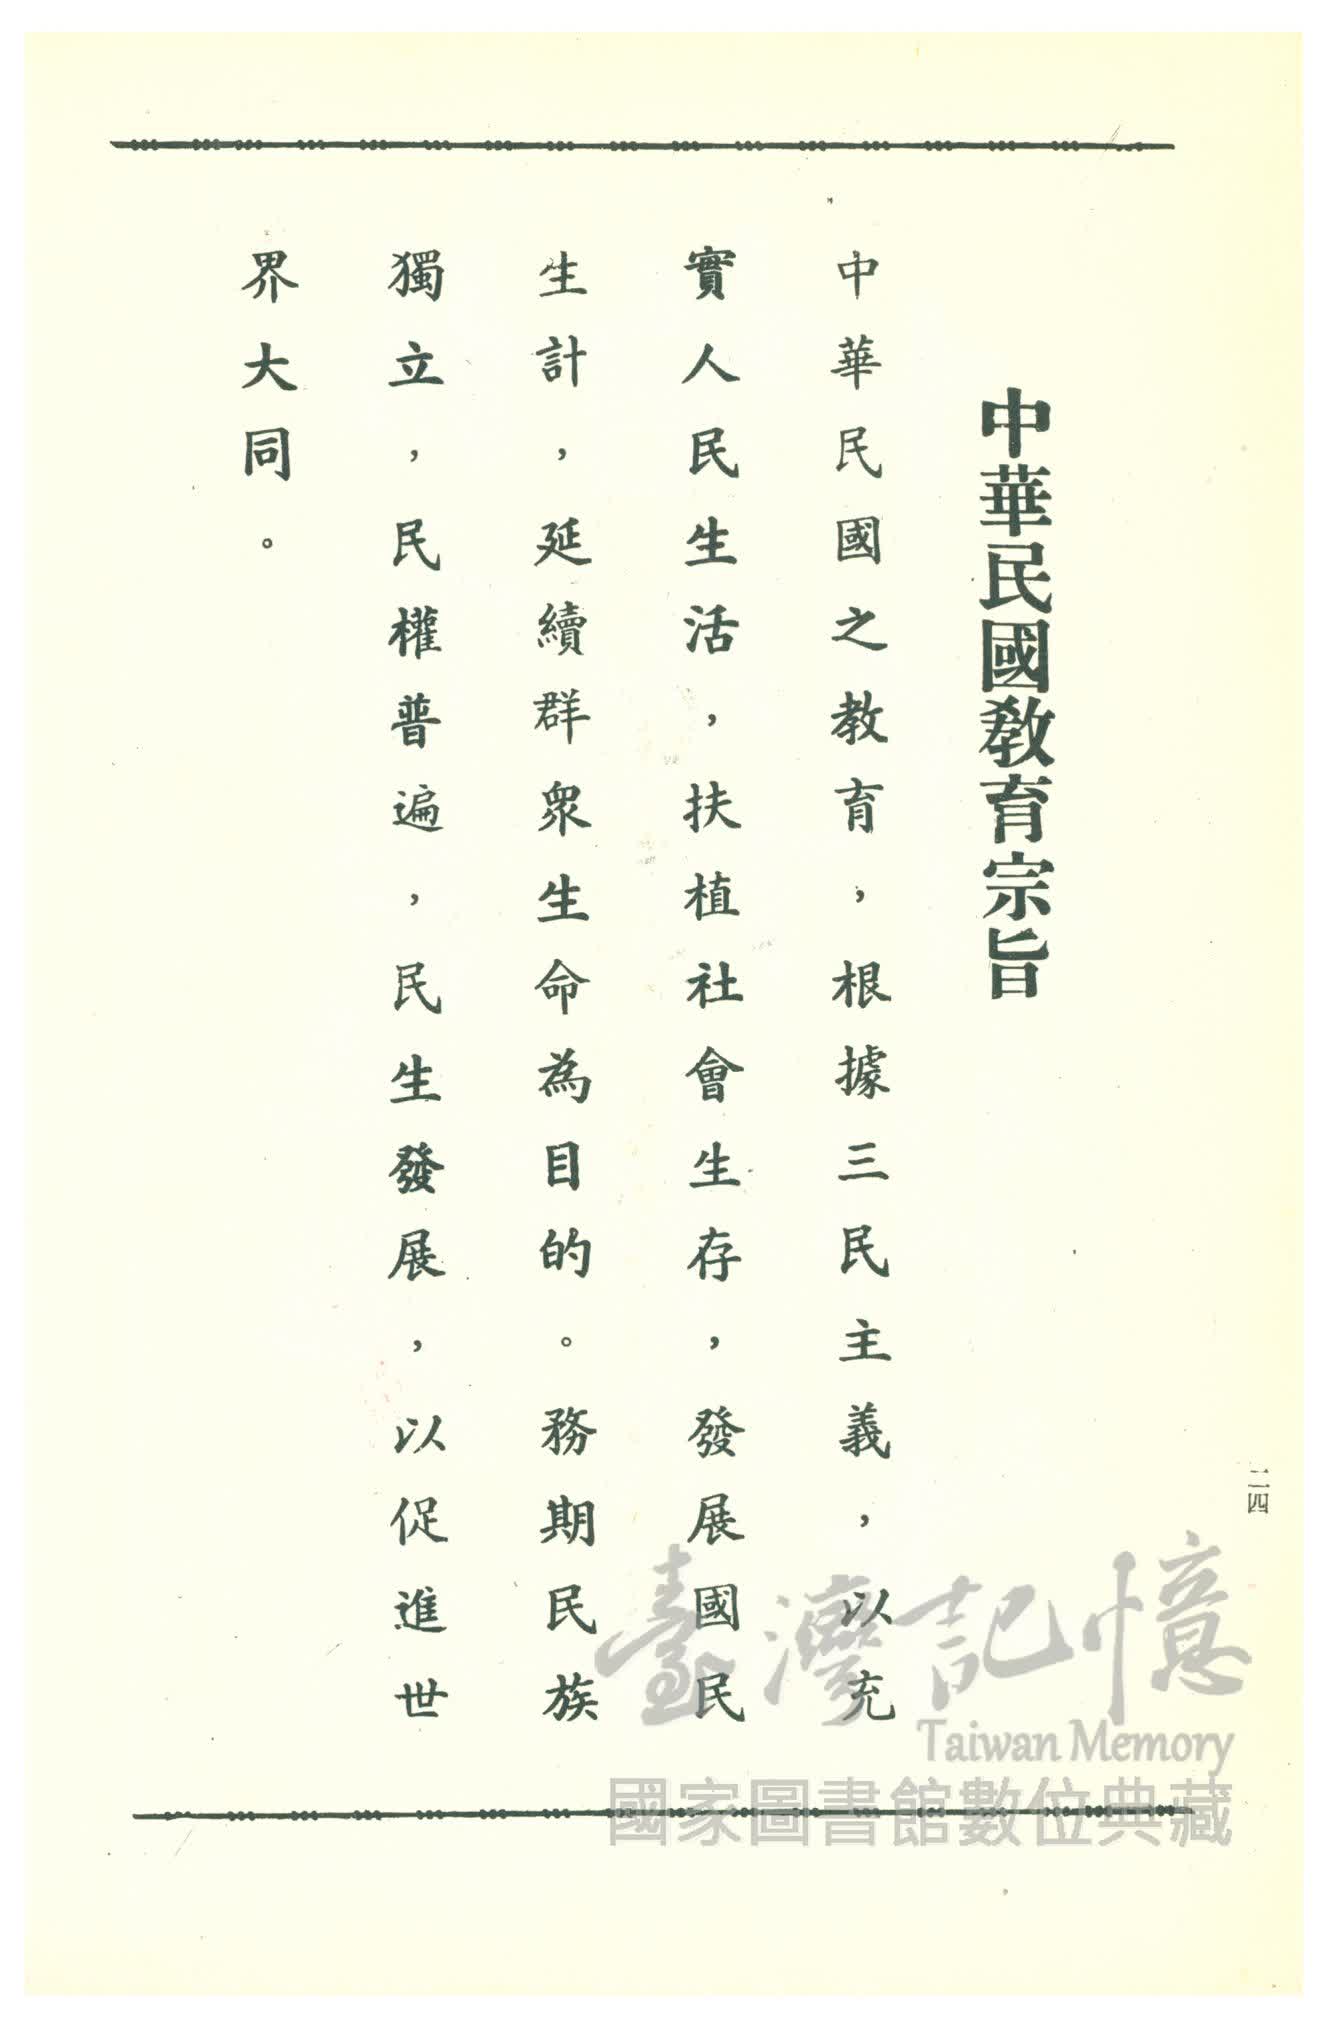 中華民國教育宗旨
中華民國之教育，根據三民主義，以充
實人民生活，扶植社會生存，發展國民
生計，延續群眾生命為目的。務期民族
獨立，民權普遍，民生發展，以促進世
界大同。
二四
臺灣記憶
Taiwan Memory
國家圖書館數位典藏